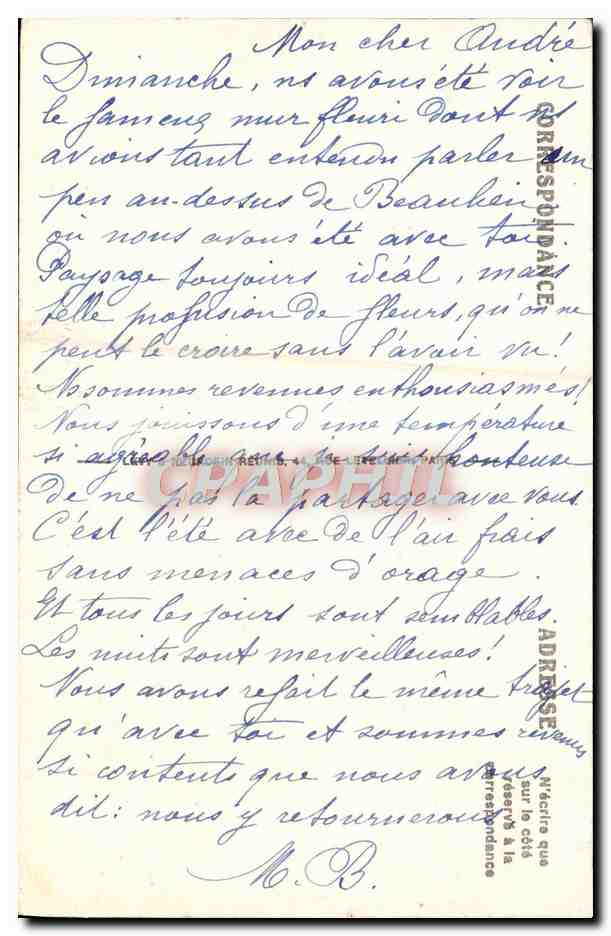 Mon cher André
Dimanche, ns avons été voir
le fameux mur fleuri dont ns
avions tant entendu parler un
peu au-dessus de Beaulieu
où nous avons été avec toi.
Paysage toujours idéal, mais
telle profusion de fleurs, qu'on ne
peut le croire sans l'avoir vu!
Ns sommes revenues enthousiasmées!
Nous jouissons d'une température
si agréable que je suis honteuse
de ne pas la partager avec vous.
C'est l'été avec de l'air frais
sans menaces d'orage.
Et tous les jours sont semblables.
Les nuits sont merveilleuses!
Nous avons refait le même trajet
qu'avec toi et sommes revenues
si contents que nous avons
dit: nous y retournerons
M. B.
CORRESPONDANCE
ADRESSE
N'écrire que
sur le côté
réservé à la
correspondance
LEVY & NEURDEIN RÉUNIS, 44, RUE LETELLIER, PARIS
CPAPHIL